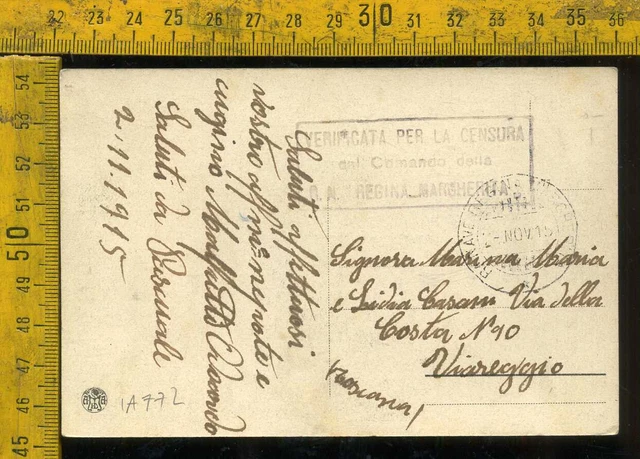 Saluti affettuosi
vostro aff.mo nepote e
cugino Malfatti Edoardo
Saluti da Pasquale
2.11.1915
VERIFICATA PER LA CENSURA
dal Comando della
R. N. "REGINA MARGHERITA"
NOV 15
Signora Marina Maria
e Lidia Casani Via della
Costa N 90
Viareggio
(Toscana)
1A772
22 23 24 25 26 27 28 29 30 31 32 33 34 35 36
54
53
52
51
50
49
48
47
46
45